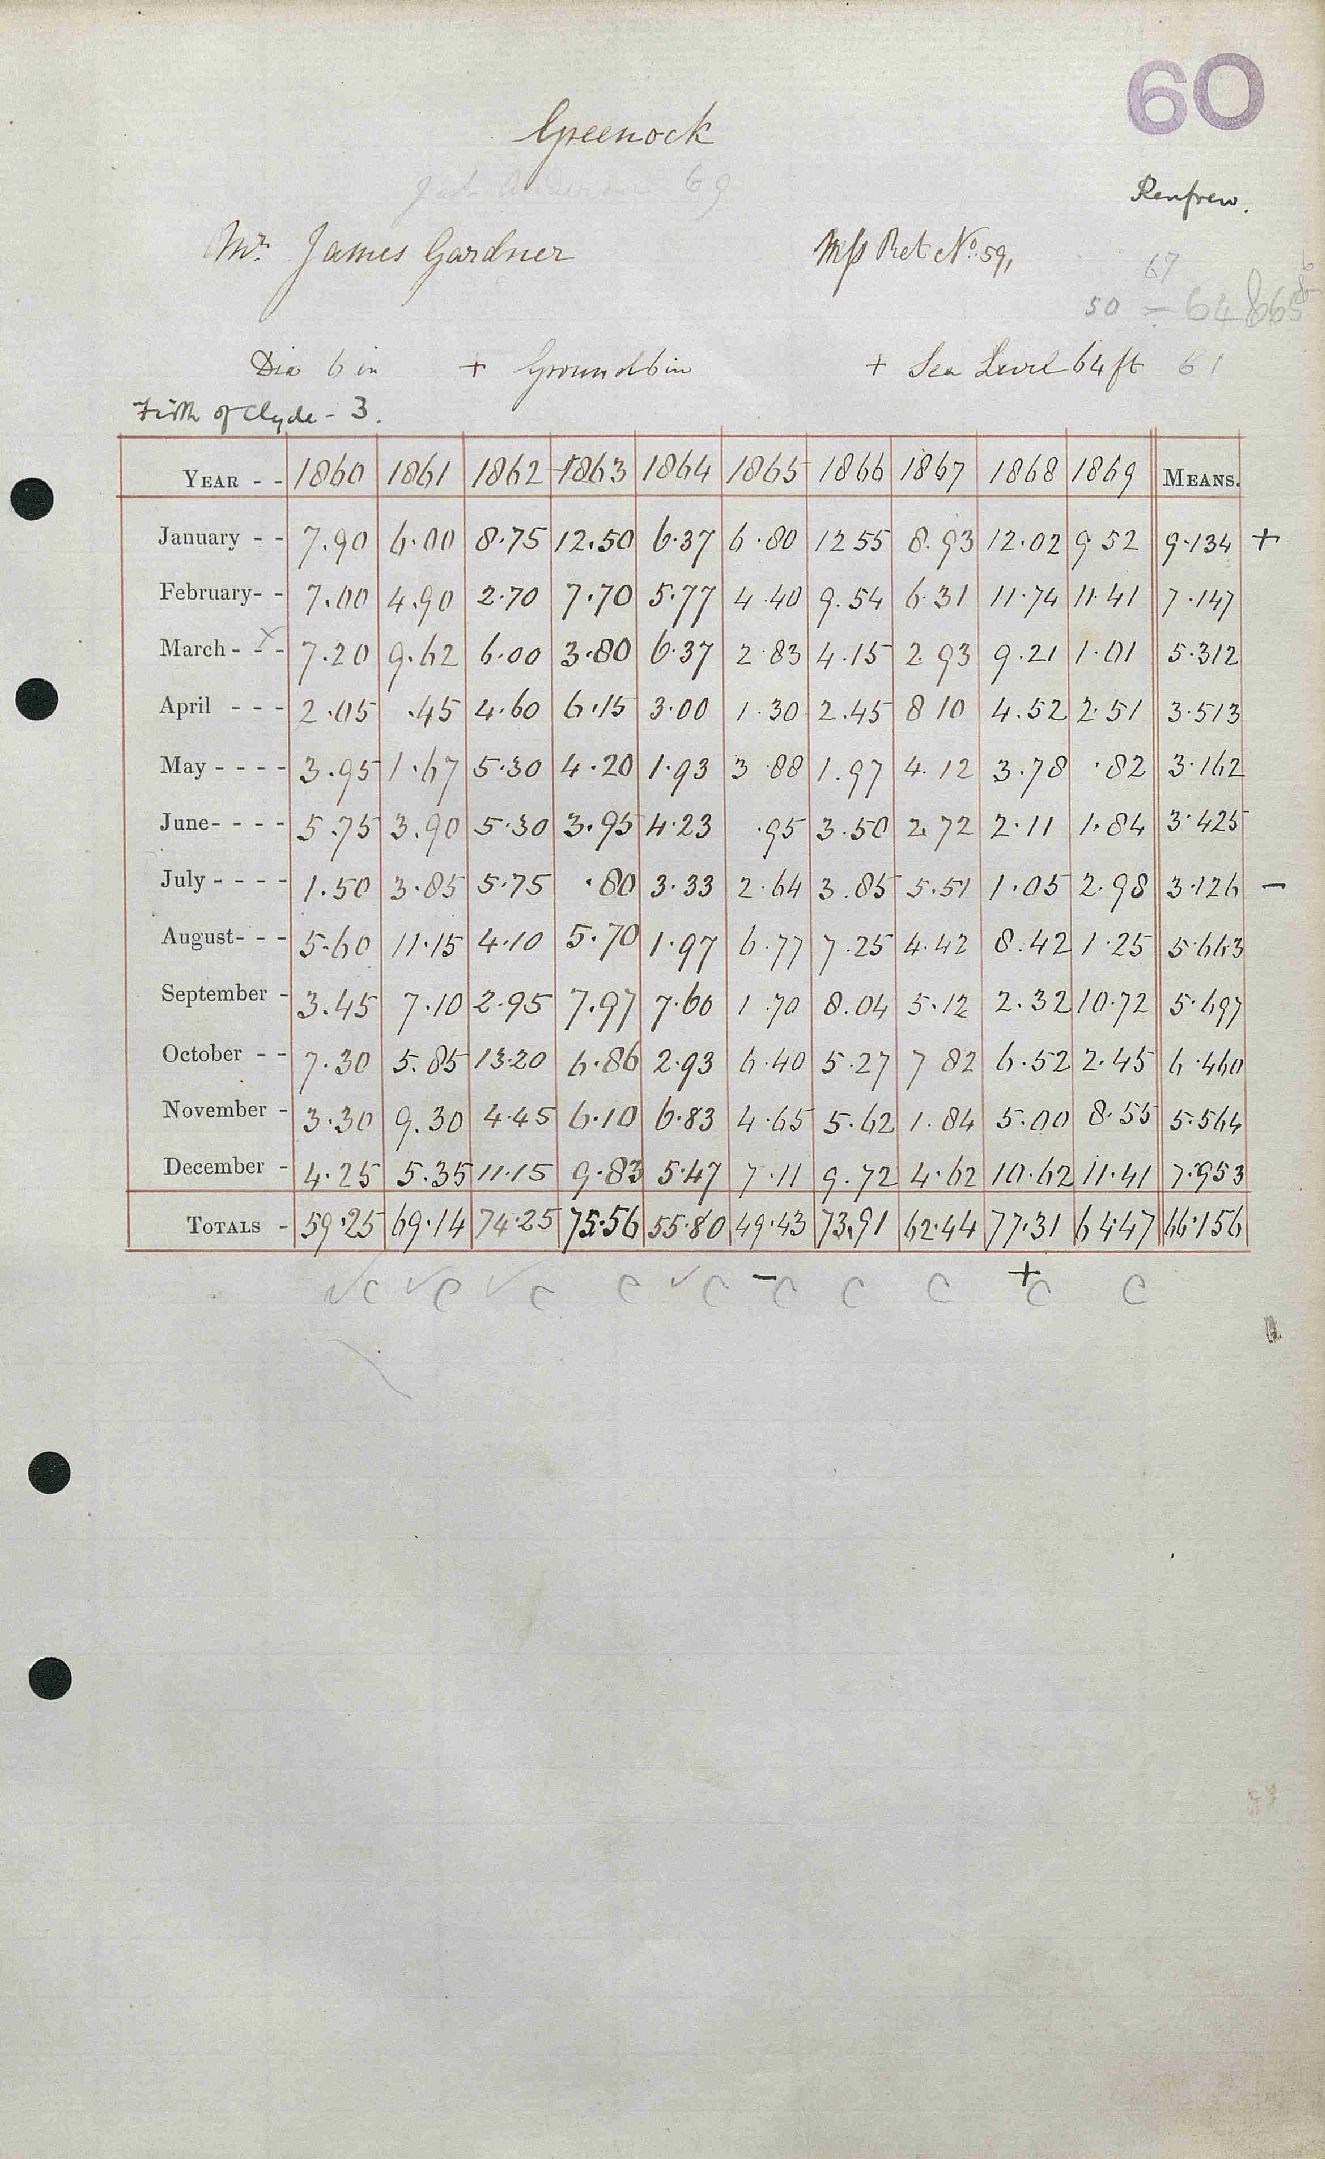 60
Greenock
Renfrew.
Mr. James Gardner Mss Ret No. 59,
67
50 = 64
Dia 6 in + Ground 6 in + Sea Level 64 ft 61
Firth of Clyde - 3.
YEAR - - 1860 1861 1862 1863 1864 1865 1866 1867 1868 1869 MEANS.
January - - 7.90 6.00 8.75 12.50 6.37 6.80 12 55 8.93 12.02 9 52 9.134 +
February- - 7.00 4.90 2.70 7.70 5.77 4 40 9.54 6 31 11.74 11.41 7.147
March - - - 7.20 9.62 6.00 3.80 6.37 2 83 4.15 2 93 9.21 1.01 5.312
April - - - 2.05 .45 4.60 6.15 3.00 1.30 2.45 8 10 4.52 2.51 3.513
May - - - - 3.95 1.67 5.30 4.20 1.93 3 88 1.97 4.12 3.78 .82 3.162
June- - - - 5.75 3.90 5.30 3.95 4.23 .95 3.50 2.72 2.11 1.84 3.425
July - - - - 1.50 3.85 5.75 .80 3.33 2.64 3.85 5.51 1.05 2.98 3.126 -
August- - - 5.60 11.15 4.10 5.70 1.97 6.77 7.25 4.42 8.42 1.25 5.663
September - 3.45 7.10 2.95 7.97 7.60 1.70 8.04 5.12 2.32 10.72 5.697
October - - 7.30 5.85 13.20 6.86 2.93 6.40 5.27 7 82 6.52 2.45 6.460
November - 3.30 9.30 4.45 6.10 6.83 4.65 5.62 1.84 5.00 8.55 5.564
December - 4.25 5.35 11.15 9.83 5.47 7.11 9.72 4.62 10.62 11.41 7.953
TOTALS - 59.25 69.14 74.25 75.56 55.80 49.43 73.91 62.44 77.31 64.47 66.156
✓c ✓c ✓c c ✓c - c c c + c c